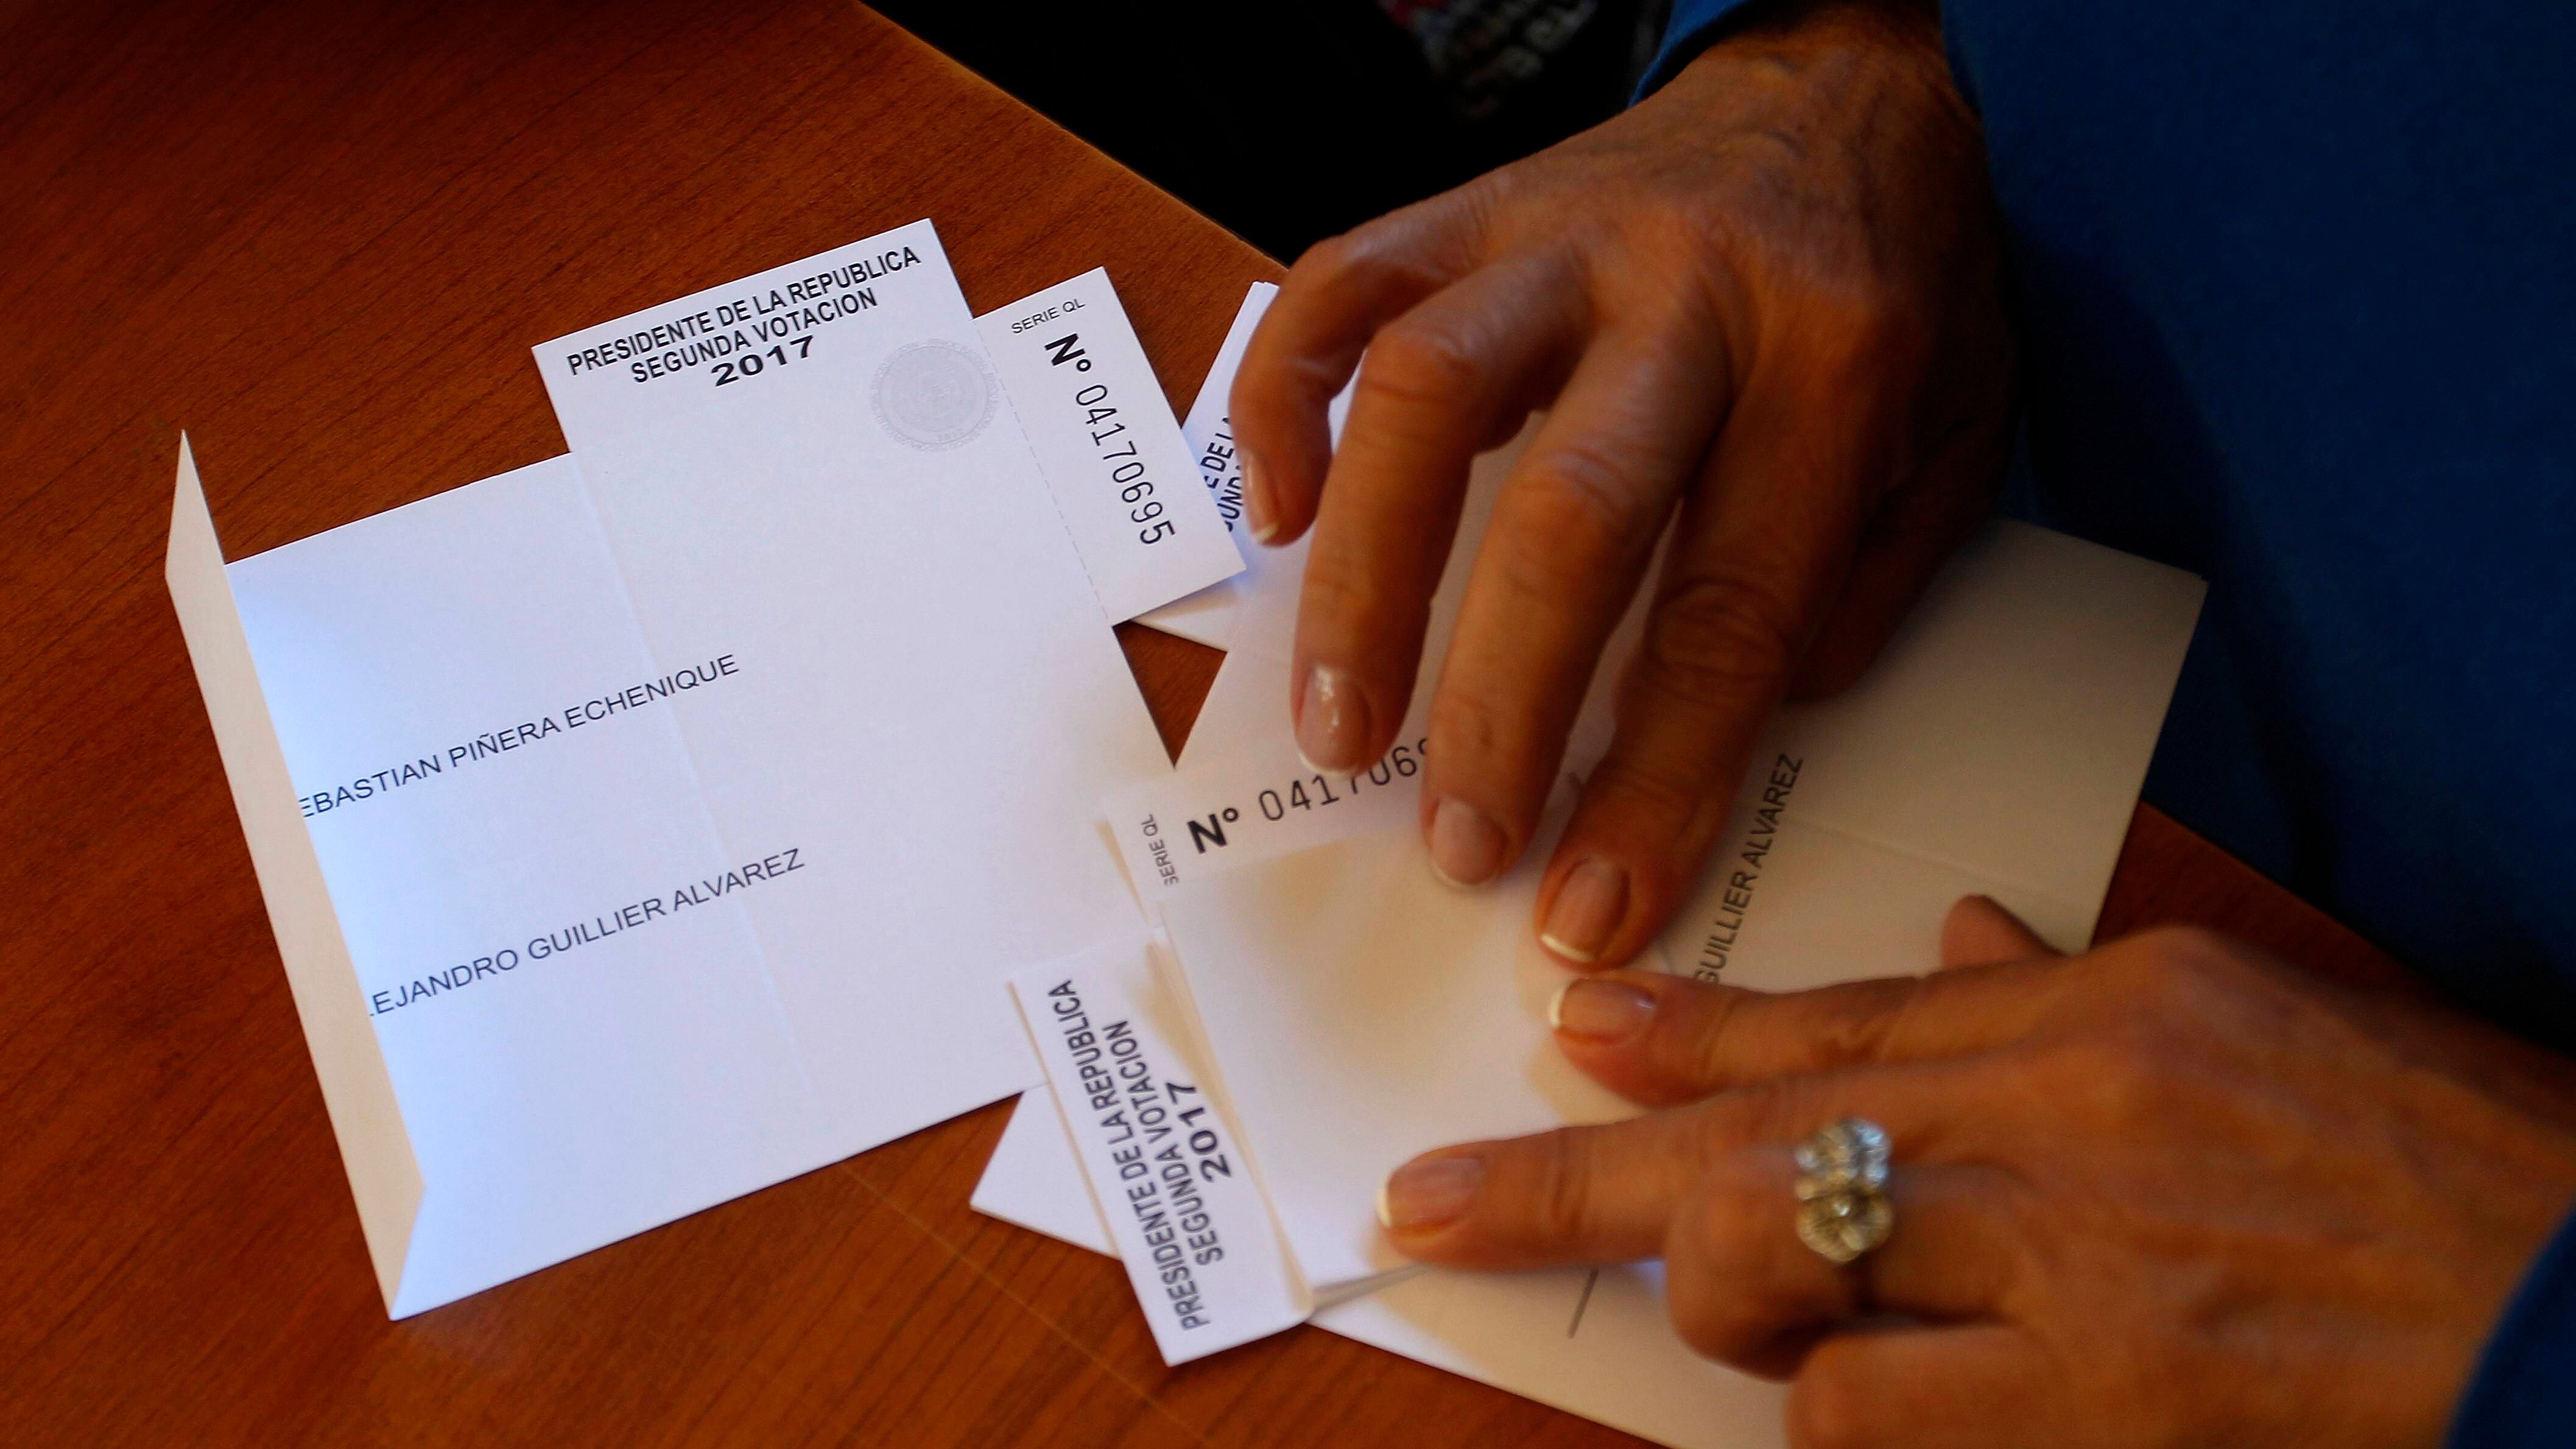 PRESIDENTE DE LA REPUBLICA
SEGUNDA VOTACION
2017
SERIE QL
Nº 04170695
EBASTIAN PIÑERA ECHENIQUE
EJANDRO GUILLIER ALVAREZ
E DE LA
SERIE QL
Nº 0417069
GUILLIER ALVAREZ
PRESIDENTE DE LA REPUBLICA
SEGUNDA VOTACION
2017